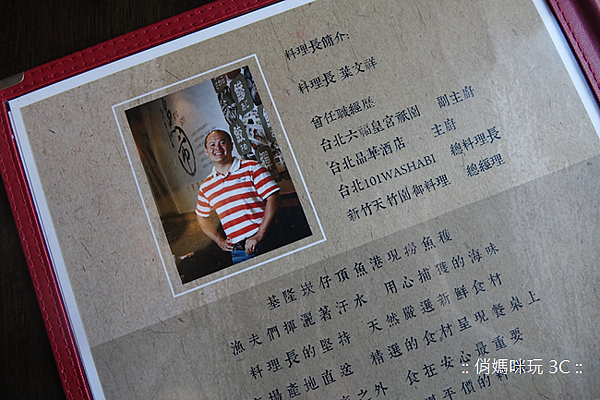 料理長簡介:
料理長 葉文祥
曾任職經歷
台北六福皇宮祇園 副主廚
台北品華酒店 主廚
台北101WASHABI 總料理長
新竹天竹園御料理 總經理
基隆崁仔頂魚港現撈魚獲
漁夫們揮灑著汗水 用心捕獲的海味
料理長的堅持 天然嚴選新鮮食材
產地直送 精選的食材呈現餐桌上
之外 食在安心最重要
:: 俏媽咪玩 3C ::